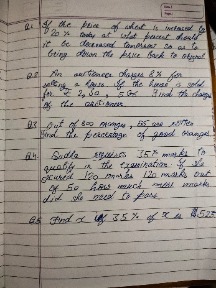 Q.1 If the price of wheat is increased by
20% today at what percent should
it be decreased tomorrow so as to
bring down the price back to original
Q.2 An auctioneer charges 8% for
selling a house. If the house is sold
for ₹ 2,30,500. Find the charges
of the auctioneer.
Q.3 Out of 800 oranges, are rotten
Find the percentage of good oranges
Q.4. Sudha requires 35% marks to
qualify in the examination. If she
secured 120 marks out
of 50 how much more marks
did she need to pass.
Q.5 Find x if 35% of x is 525